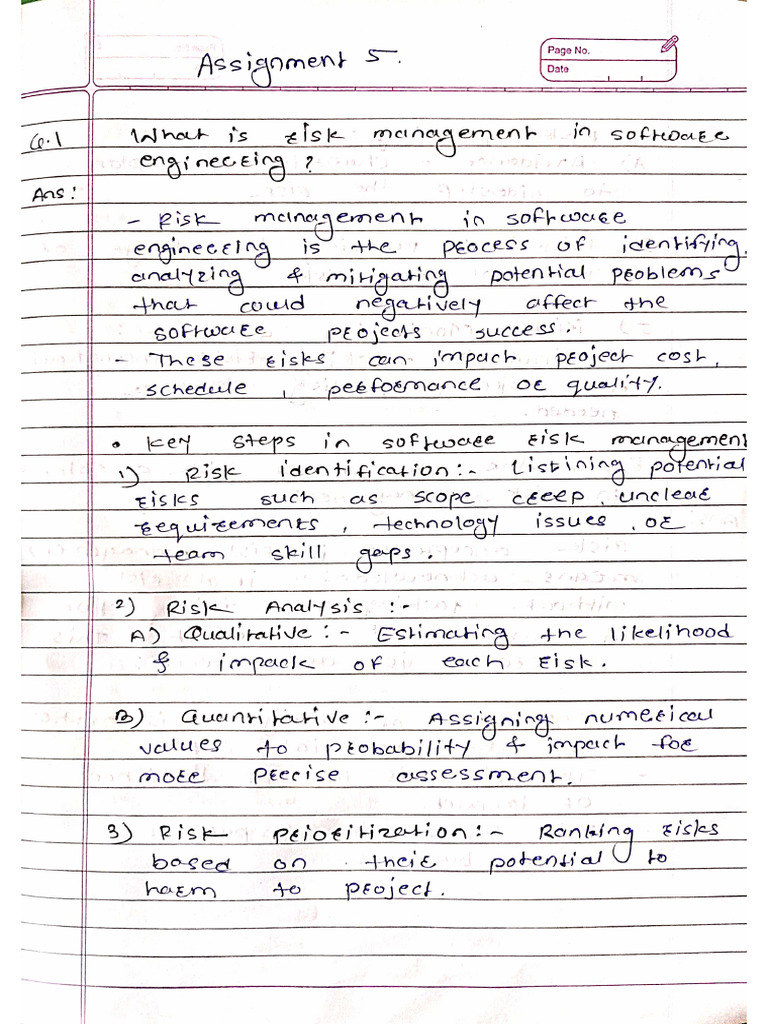 Assignment 5.
Page No.
Date
Q.1 What is risk management in software
engineering?
Ans:
- Risk management in software
engineering is the process of identifying,
analyzing & mitigating potential problems
that could negatively affect the
software projects success.
- These risks can impact project cost,
schedule, performance or quality.
• Key steps in software risk management
1) Risk identification:- Listining potential
risks such as scope creep, unclear
requirements, technology issues, or
team skill gaps.
2) Risk Analysis :-
A) Qualitative:- Estimating the likelihood
& impack of each risk.
B) Quantitative:- Assigning numerical
values to probability & impact for
more precise assessment.
3) Risk prioritization:- Ranking risks
based on their potential to
harm to project.